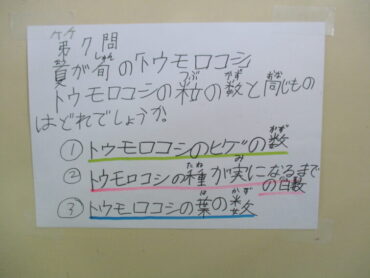 第7問
しゅん
夏が旬のトウモロコシ
つぶ かず おな
トウモロコシの粒の数と同じもの
はどれでしょうか。
かず
①トウモロコシのヒゲの数
たね み
②トウモロコシの種が実になるまで
の日数
は かず
③トウモロコシの葉の数